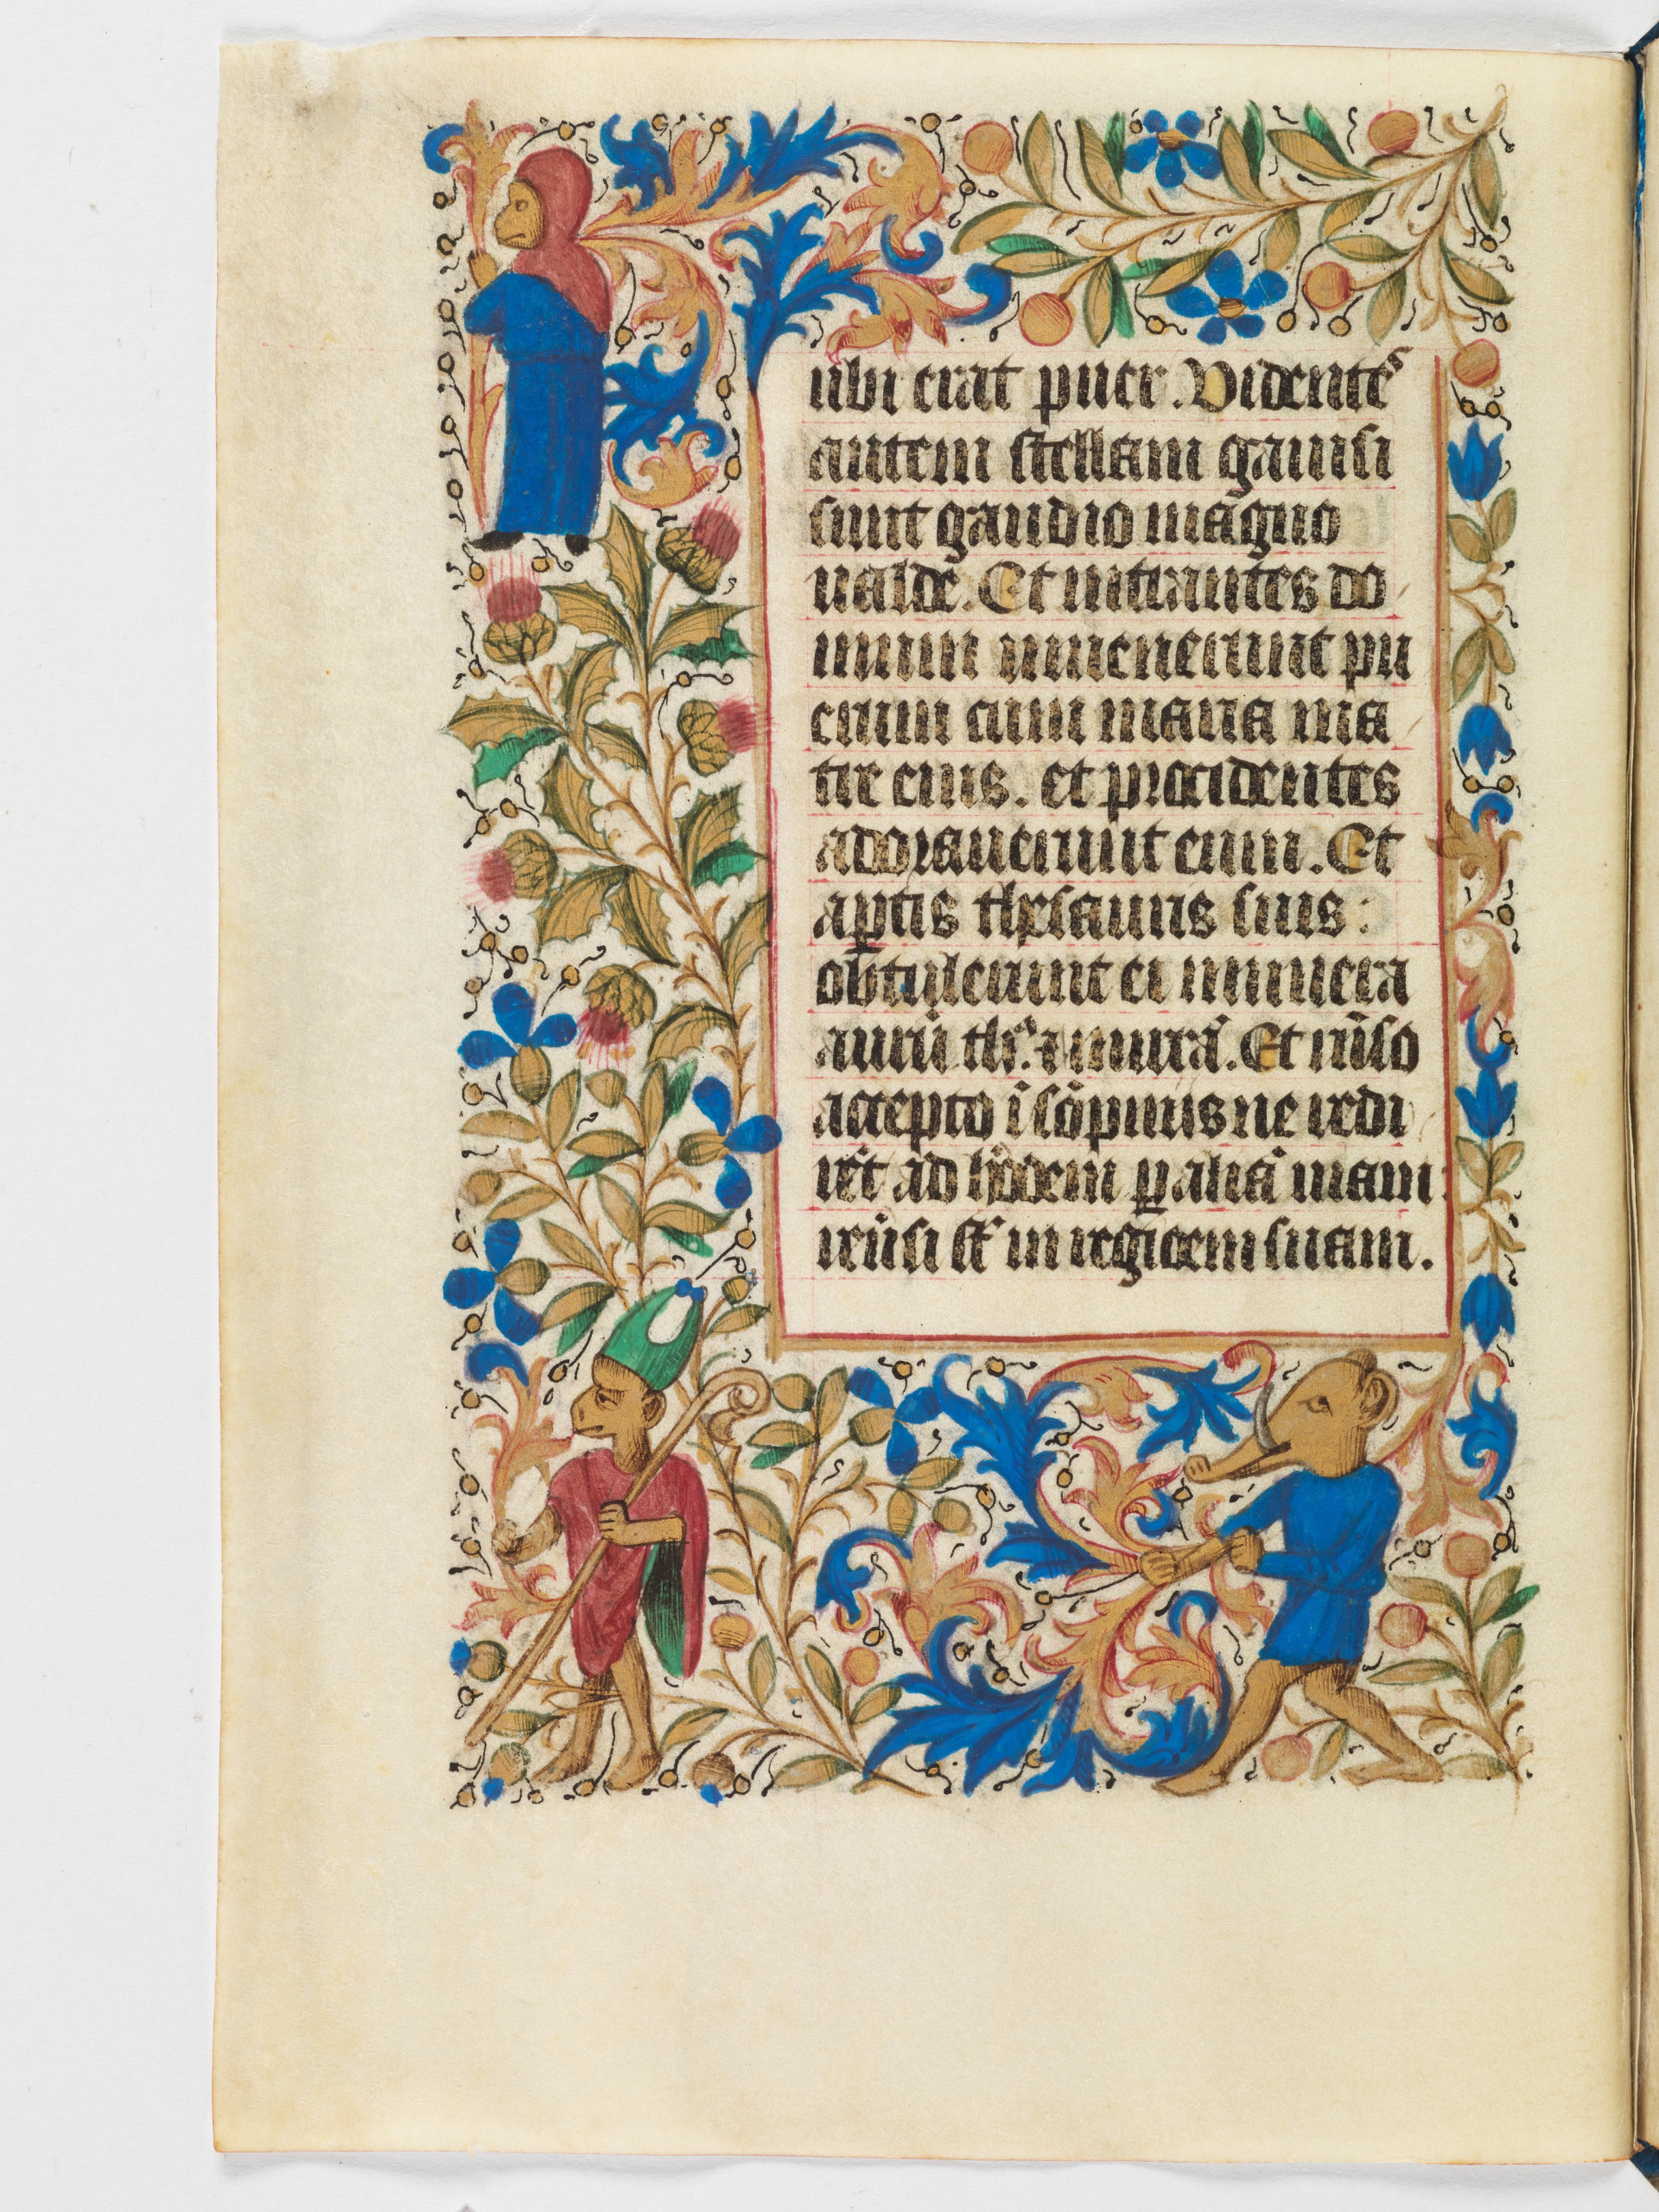 ubi erat puer. Vidente᷒
autem stellam gauisi
sunt gaudio magno
ualde. Et intrantes do
mum inuenerunt pu
erum cum maria ma
tre eius. et procidentes
adorauerunt eum. Et
aptis thesauris suis:
obtulerunt ei munera
aurū th᷒. ⁊ mirrā. Et rn̄so
accepto ī sōpnnis ne redi
rēt ad h̓odem ꝑ aliā uiam
reūsi st̄ in regionem suam.